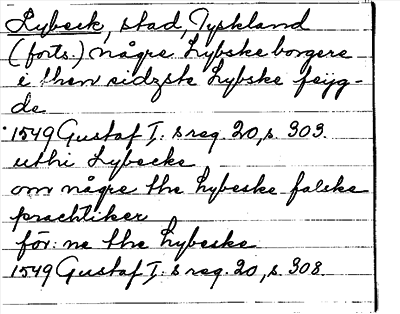 Lybeck, stad, Tyskland
(forts.) någre Lybske borgere
i then sidzste Lybske feyg-
de
1549 Gustaf I:s reg. 20, s. 303.
uthi Lybecke
om någre the Lybeske falske
prachtiker
för:ne the Lybeske
1549 Gustaf I:s reg. 20, s. 308.